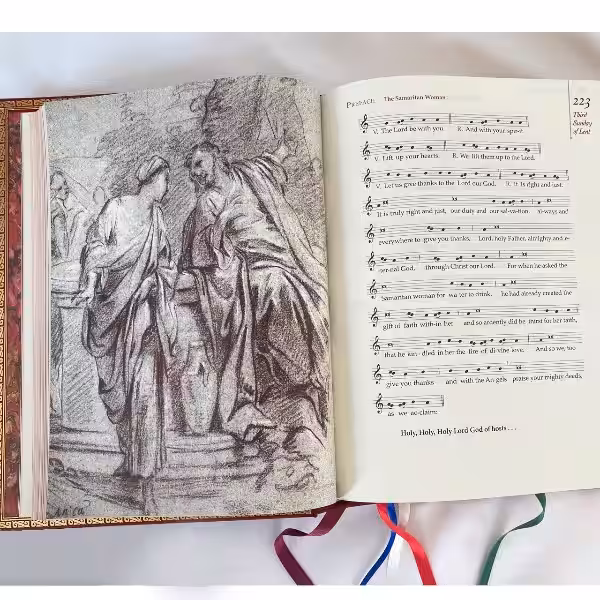 PREFACE: The Samaritan Woman
223
Third
Sunday
of Lent
V. The Lord be with you. R. And with your spirit.
V. Lift up your hearts. R. We lift them up to the Lord.
V. Let us give thanks to the Lord our God. R. It is right and just.
It is truly right and just, our duty and our sal-va-tion, al-ways and
everywhere to give you thanks, Lord, holy Father, almighty and e-
ter-nal God, through Christ our Lord. For when he asked the
Samaritan woman for wa-ter to drink, he had already created the
gift of faith with-in her and so ardently did he thirst for her faith,
that he kin-dled in her the fire of di-vine love. And so we, too
give you thanks and with the An-gels praise your mighty deeds,
as we ac-claim:
Holy, Holy, Holy Lord God of hosts . . .